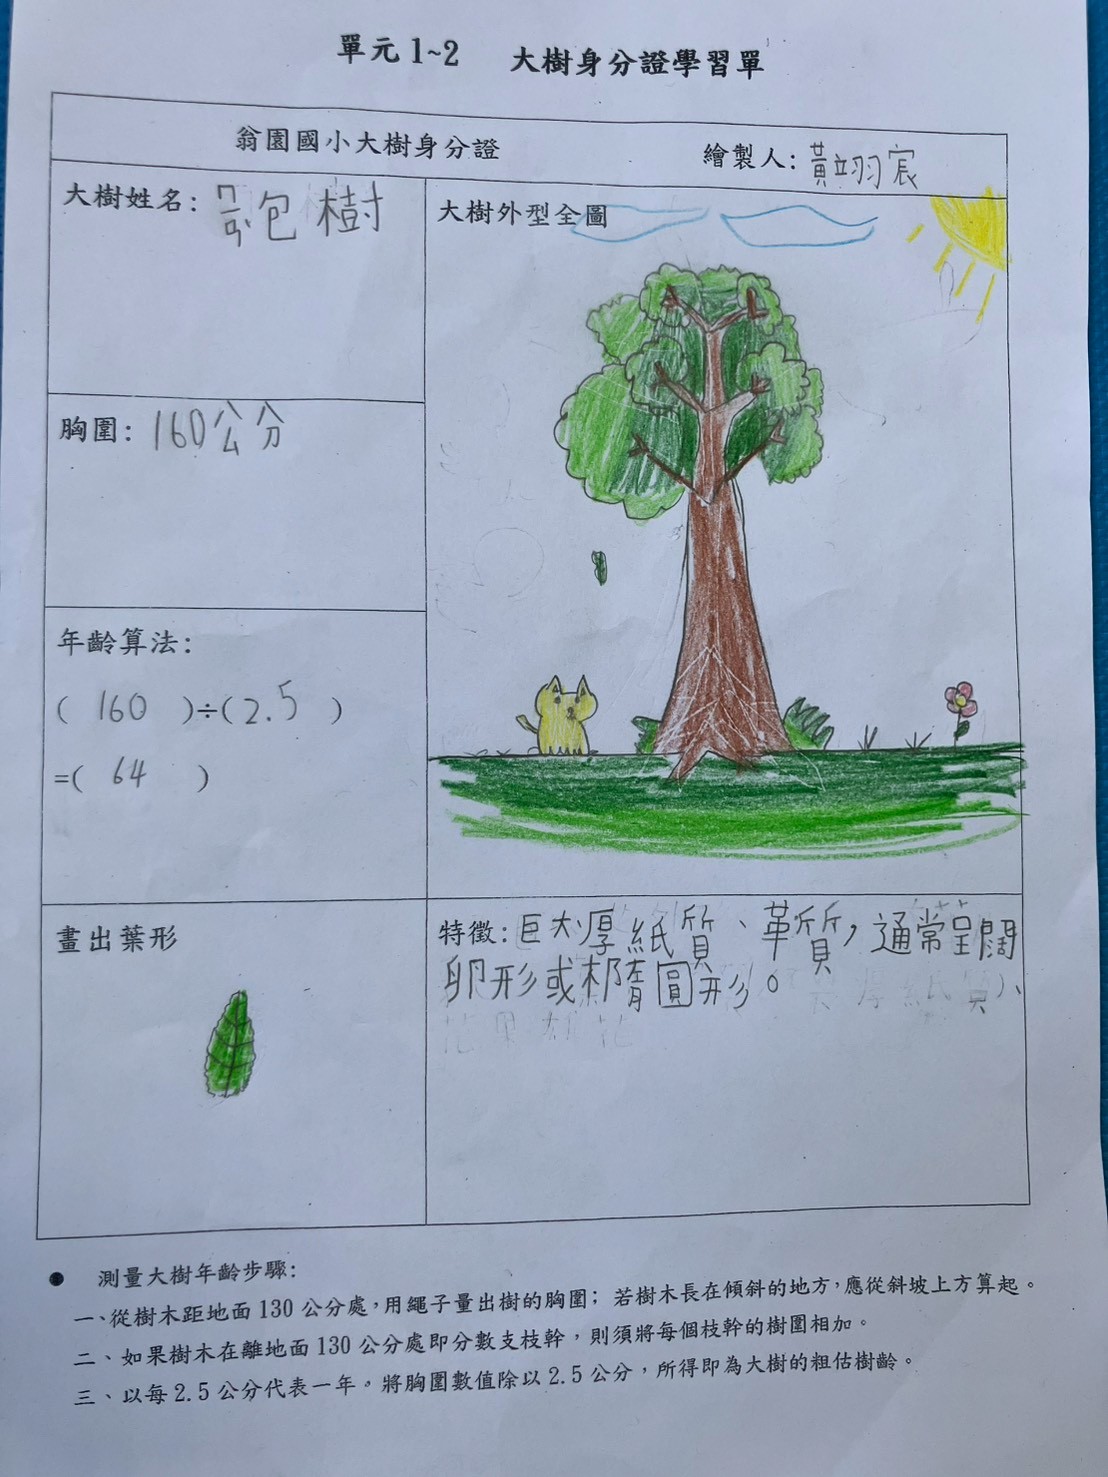 單元 1~2 大樹身分證學習單
翁園國小大樹身分證
繪製人: 黃翊宸
大樹姓名: ㄇㄧㄢˋ包樹
大樹外型全圖
胸圍: 160公分
年齡算法:
( 160 )÷( 2.5 )
=( 64 )
畫出葉形
特徵: 巨大厚紙質、革質,通常呈闊
卵形或橢圓形。
● 測量大樹年齡步驟:
一、從樹木距地面 130 公分處,用繩子量出樹的胸圍; 若樹木長在傾斜的地方,應從斜坡上方算起。
二、如果樹木在離地面 130 公分處即分數支枝幹,則須將每個枝幹的樹圍相加。
三、以每 2.5 公分代表一年。將胸圍數值除以 2.5 公分,所得即為大樹的粗估樹齡。